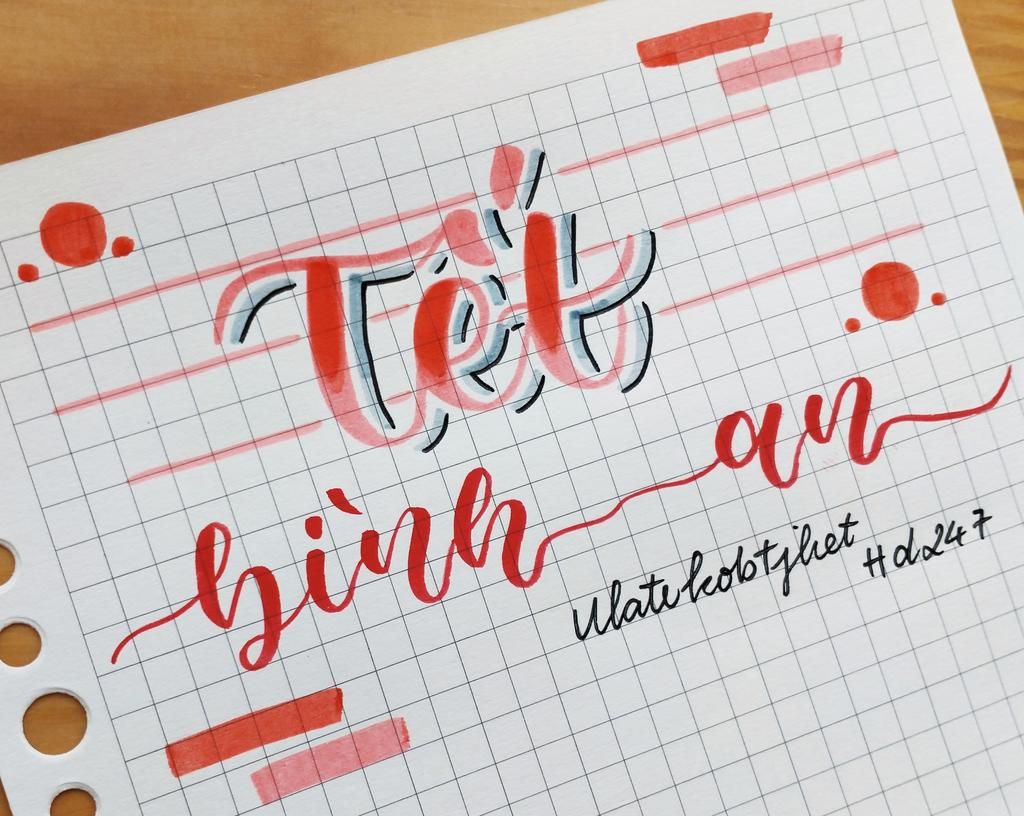 Tết
bình an
Hd247